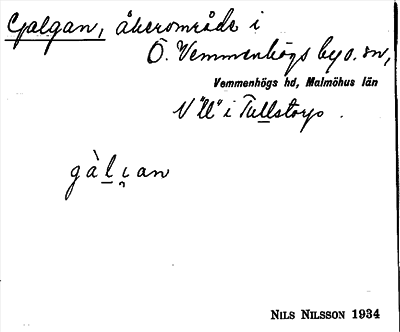 Galgan, åkerområde i
Ö. Vemmenhögs by o. sn,
Vemmenhögs hd, Malmöhus län
V "ll" i Tullstorp.
gàlɩ̯an
NILS NILSSON 1934